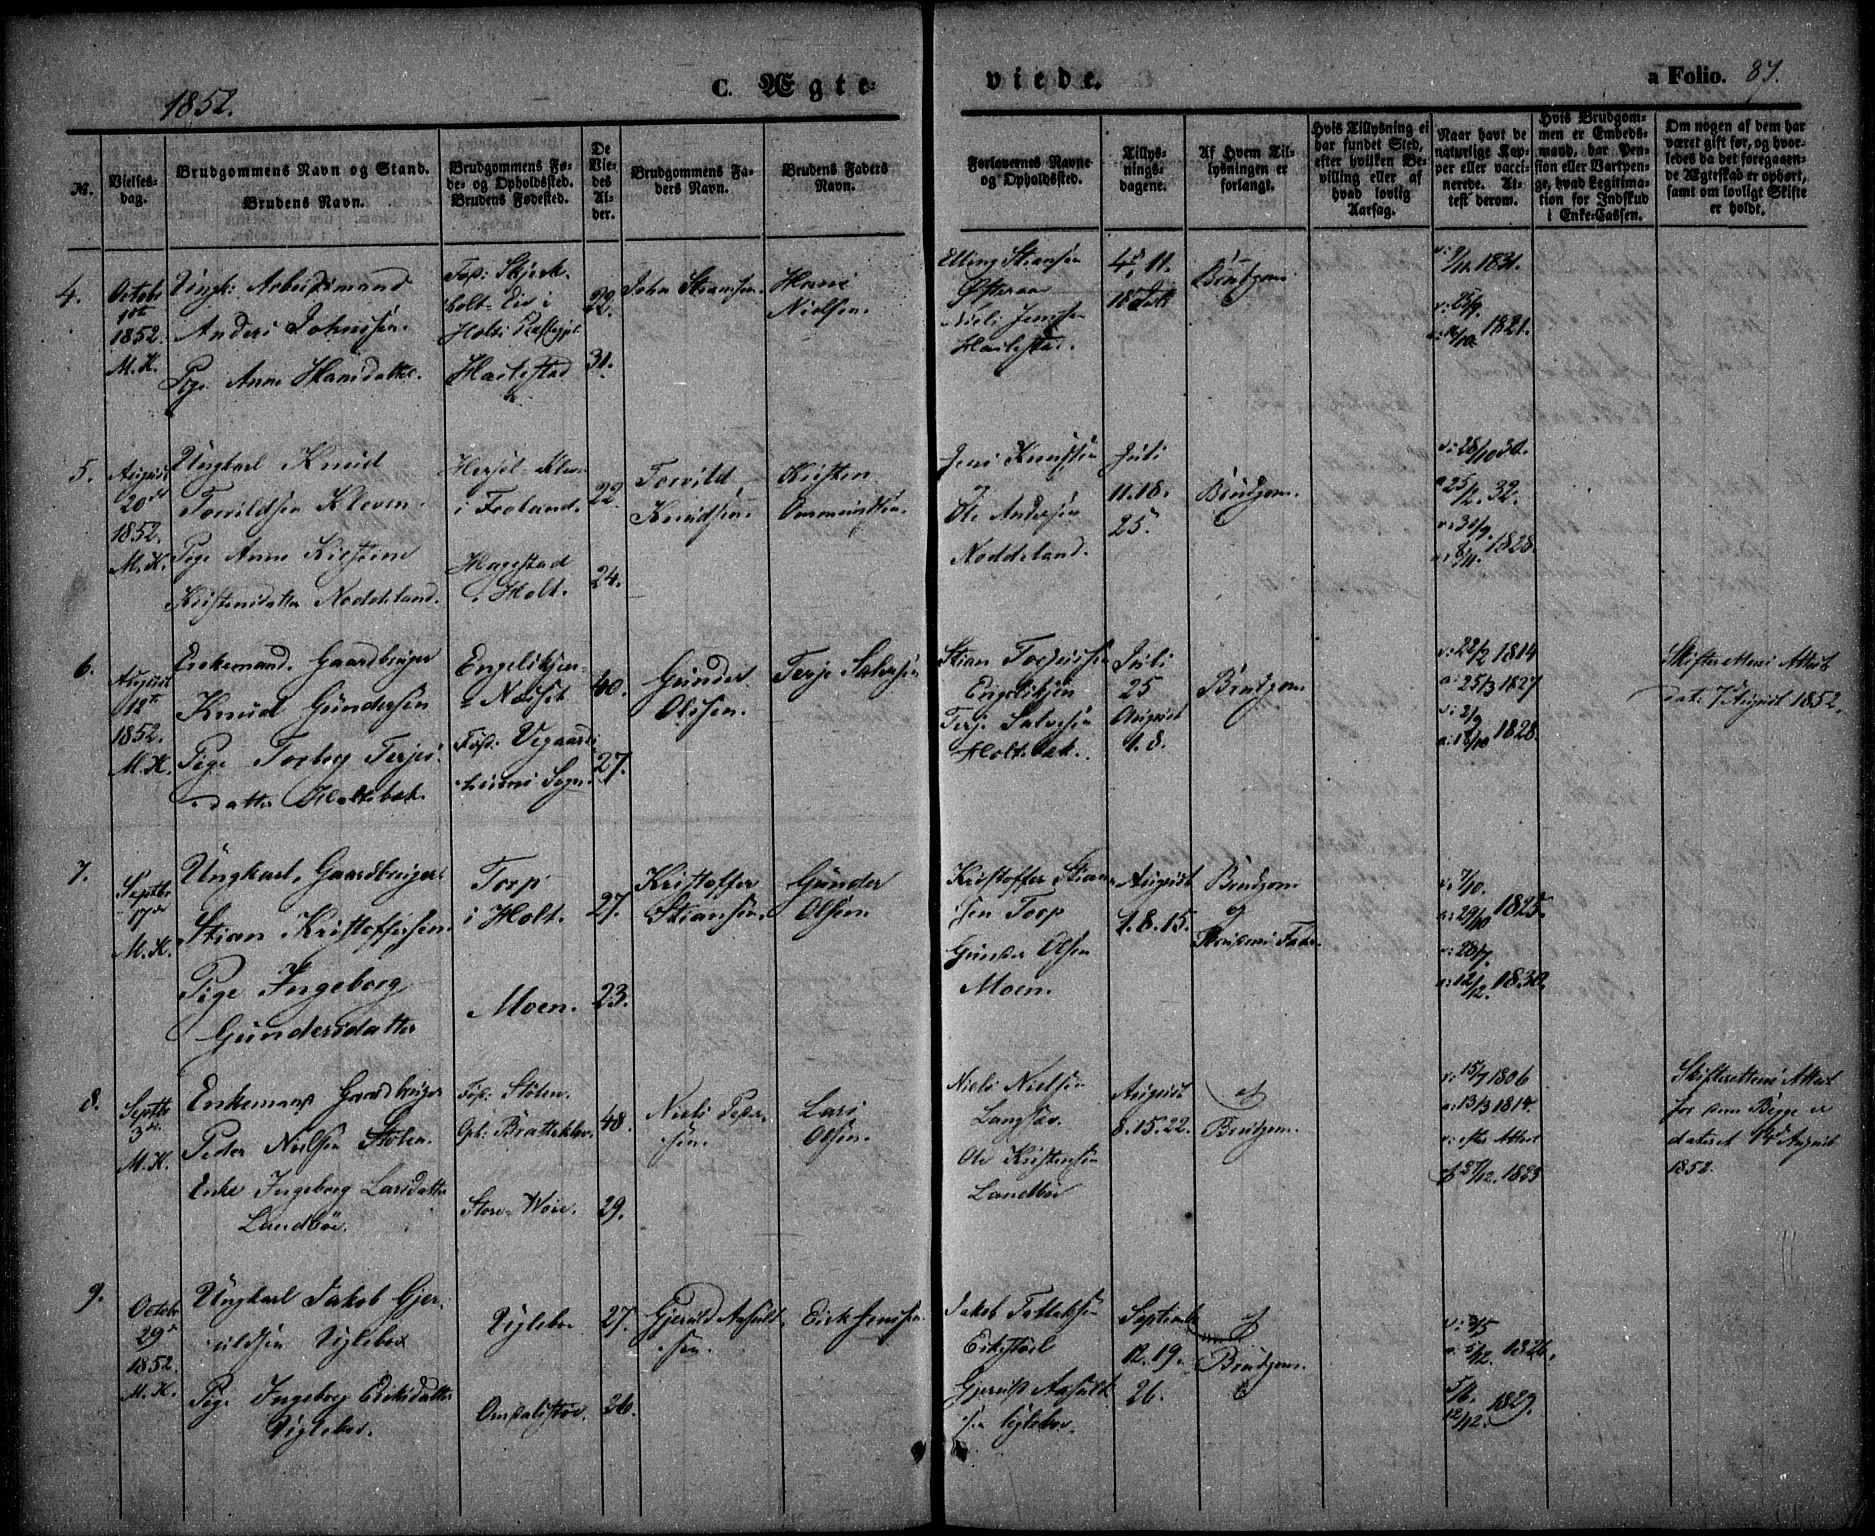 1852.
C. Ægte-
viede.
a Folio. 87.
№.
Vielses-
dag.
Brudgommens Navn og Stand.
Brudens Navn.
Brudgommens Fø-
de- og Opholdssted.
Brudens Fødested.
De
Vie-
des
Al-
der.
Brudgommens Fa-
ders Navn.
Brudens Faders
Navn.
Forlovernes Navne
og Opholdssted.
Tillys-
nings-
dagene.
Af Hvem Til-
lysningen er
forlangt.
Hvis Tillysning ei
har fundet Sted,
efter hvilken Be-
villing eller af
hvad lovlig
Aarsag.
Naar havt de
naturlige Kop-
per eller vacci-
nerede. At-
test derom.
Hvis Brudgom-
men er Embeds-
mand, har Pen-
sion eller Vartpen-
ge, hvad Legitima-
tion for Indskud
i Enke-Cassen.
Om nogen af dem har
været gift før, og hvor-
ledes da det foregaaen-
de Ægteskab er ophørt,
samt om lovligt Skifte
er holdt.
4.
Octobr
1852.
M.K.
Ungk: Arbeidsmand
Anders Johnsen.
Pige Anne Hansdatter.
22.
31.
John Stiansen.
Hans
Nielsen.
Elling Stiansen
Niels Jensen
4, 11.
18 Juli
Brudgom
9/11 1831.
1821.
5.
August
20de
1852.
M.K.
Ungkarl Knud
Torvildsen Kleven.
Pige Anne Kirstine
Kristensdatter Noddeland.
i Froland.
Hagestad
i Holt.
22
24.
Torvild
Knudsen.
Kristen
Ommundsen.
Jens Knudsen
og
Ole Andersen
Noddeland.
Juli
11. 18.
25.
Brudgom.
v: 28/10 30.
a 25/2. 32.
1828.
6.
August
12te
1852.
M.K.
Enkemand. Gaardbruger
Knud Gundersen
Pige Torbor Terjes-
datter Holtebek.
Fød: Vegaards-
40.
27.
Gunder
Olssen.
Terje Salvesen
Stian
Terje Salvesen
Holtebek.
Juli
25
August
1. 8.
Brudgom
v: 22/2 1814
a: 25/3 1827
1828.
Skifterettens Attest
dat: 7 August 1852.
7.
Septbr
17de
M.K.
Ungkarl, Gaardbruger
Stian Kristoffersen.
Pige Ingeborg
Gundersdatter
Torp
i Holt.
Moen.
27.
23.
Kristoffer
Stiansen.
Gunder
Olsen
Kristoffer Stian-
sen Torp
Gunder Olsen
Moen.
August
1. 8. 15.
Brudgom
og
Brudens Fader.
v: 7/10.
a: 29/10 1825.
v: 28/7.
a: 12/12. 1830.
8.
Septbr
3de
M.K.
Enkemand Gaardbruger
Peder Nielsen Stølen.
Enke Ingeborg Larsdatter
Landbøe.
Fød: Stølen.
48.
29.
Niels Peder-
sen.
Lars
Olsen.
Niels Nielsen
Ole Kristensen
Landbøe
August
8. 15. 22.
af
Brudgom.
v: 15/7 1806
a: 13/3 1814.
v: efter Attest
af 27/12. 1833
Skifterettens Attest
for dem Begge er
dateret 14 August
1852.
9.
Octobr
29de
1852.
M.K.
Ungkarl Jakob Gjer-
uldsen Viglebøe
Pige Ingeborg Eriksdatter
Viglebøe.
Viglebøe
27.
26.
Gjeruld Aasuld-
sen.
Erik Jenssen.
Jakob
Gjeruld Aasuld-
sen Viglebøe.
September
12. 19.
26.
af
Brudgom.
1826.
12/12. 1829.